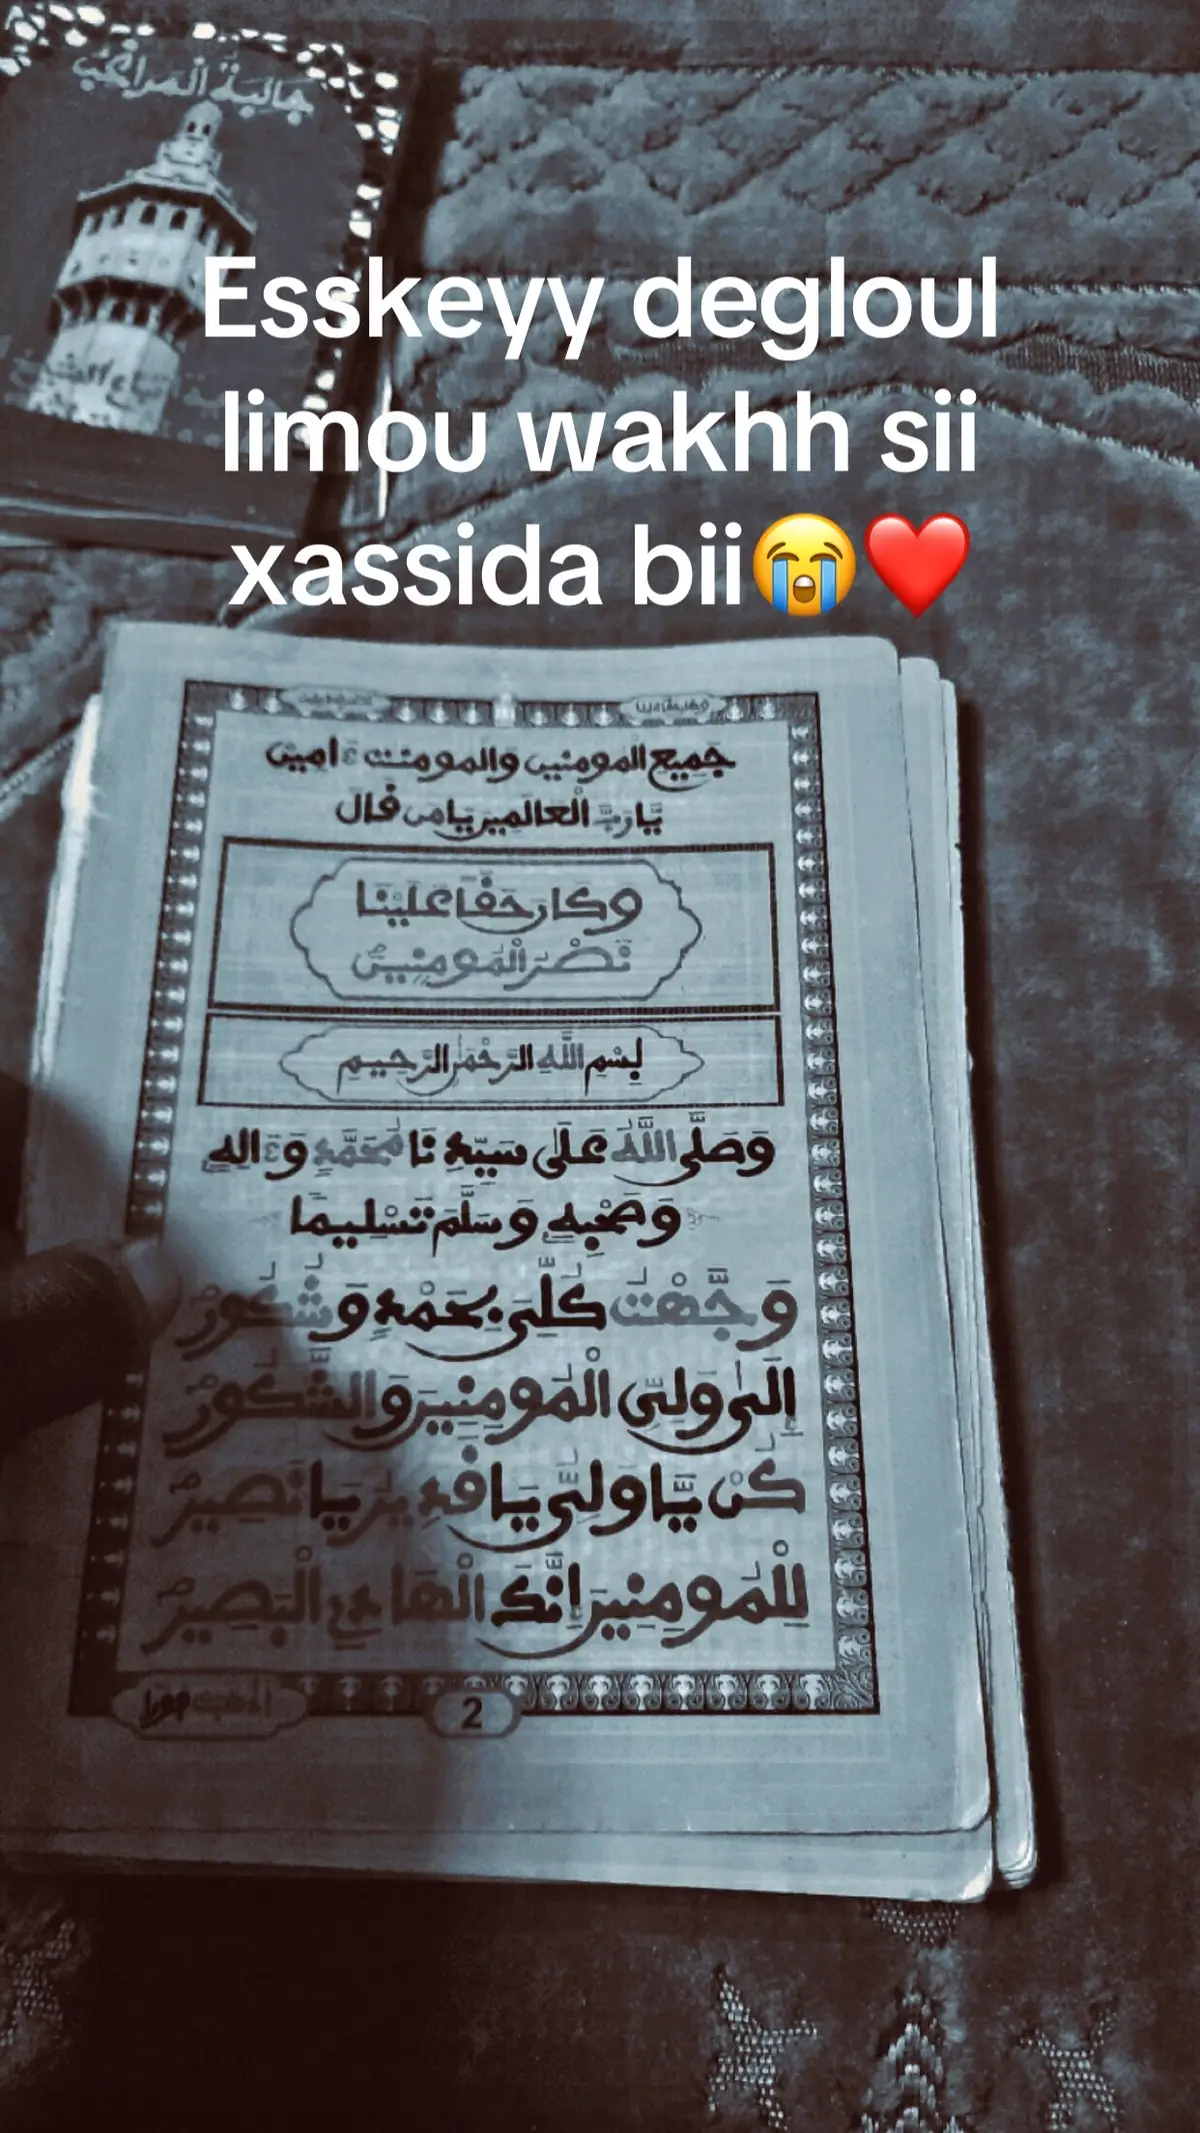 جالبة المراغب
Esskeyy degloul
limou wakhh sii
xassida bii😭❤️
جَمِيعِ الْمُومنين والمومنت ءامين
يَارَبَّ الْعَالَمِين يامن قال
وَكَانَ حَقًّا عَلَيْنَا
نَصْرُ الْمُومِنِينَ
بِسْمِ اللَّهِ الرَّحْمَٰنِ الرَّحِيمِ
وَصَلَّى اللَّهُ عَلَى سَيِّدِنَا مُحَمَّدٍ وَءَالِهِ
وَصَحْبِهِ وَسَلَّمَ تَسْلِيمًا
وَجَّهْتُ كُلِّي بِحَمْدٍ وَشُكُورْ
إِلَى وَلِيِّ الْمُومِنِينَ وَالشَّكُورْ
كُنْ يَا وَلِيُّ يَا قَدِيرُ يَا نَصِيرْ
لِلْمُومِنِينَ إِنَّكَ الْهَادِي الْبَصِيرْ
2